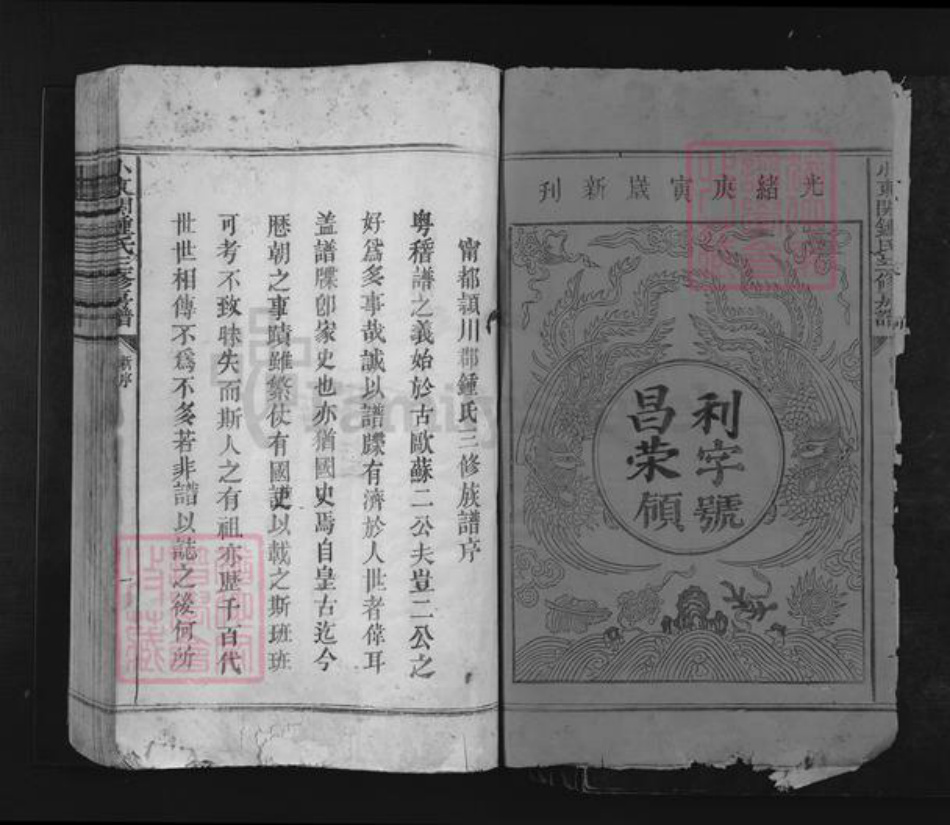 光緒庚寅歲新刊
利字號
昌荣領
甯都頴川郡鍾氏三修族譜序
粤稽譜之義始於古歐蘇二公夫豈二公之
好爲多事哉誠以譜牒有濟於人世者偉耳
盖譜牒卽家史也亦猶國史焉自皇古迄今
歴朝之事蹟雖繁仗有國諟以載之斯班班
可考不致昧失而斯人之有祖亦歷千百代
世世相傳不爲不多若非譜以誌之後何所
鍾氏三修族譜
新序
一